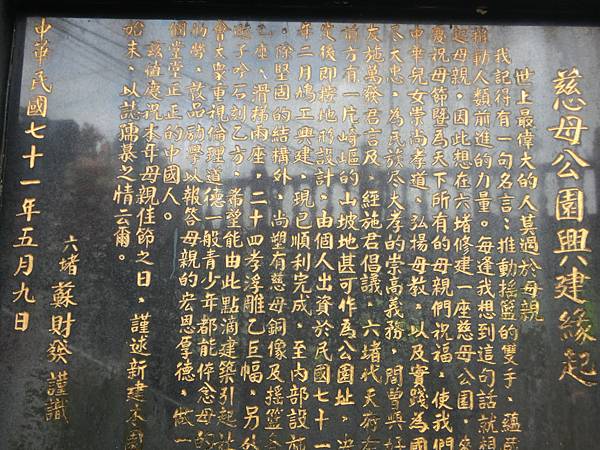 慈母公園興建緣起
世上最偉大的人莫過於母親
我記得有一句名言：推動搖籃的雙手，蘊
推動人類前進的力量。每逢我想到這句話就想
起母親，因此想在六堵修建一座慈母公園，來
慶祝母節暨為天下所有的母親們祝福，使我們
中華兒女崇尚孝道、弘揚母教，以及實踐為國
盡大忠，為民族盡大孝的崇高義務，間曾與好
友施萬發君言及，經施君倡議，六堵代天府左
前方有一片崎嶇的山坡地甚可作為公園址，
定後即按地形設計，由個人出資於民國七十一
年二月鳩工興建，現已順利完成，至內部設施
，除堅固的結構外，尚塑有慈母銅像及搖籃各
乙座、滑梯兩座，二十四孝浮雕乙巨幅，另外
遊子吟石刻乙方，希望能由此點滴建築引起社
會大眾重視倫理道德一般青少年都能体念母
劬勞，敦品勵學以報答母親的宏恩厚德，做一
個堂堂正正的中國人。
茲值慶祝本年母親佳節之日，謹述新建本園
始末，以誌孺慕之情云爾。
六堵 蘇財發 謹識
中華民國七十一年五月九日